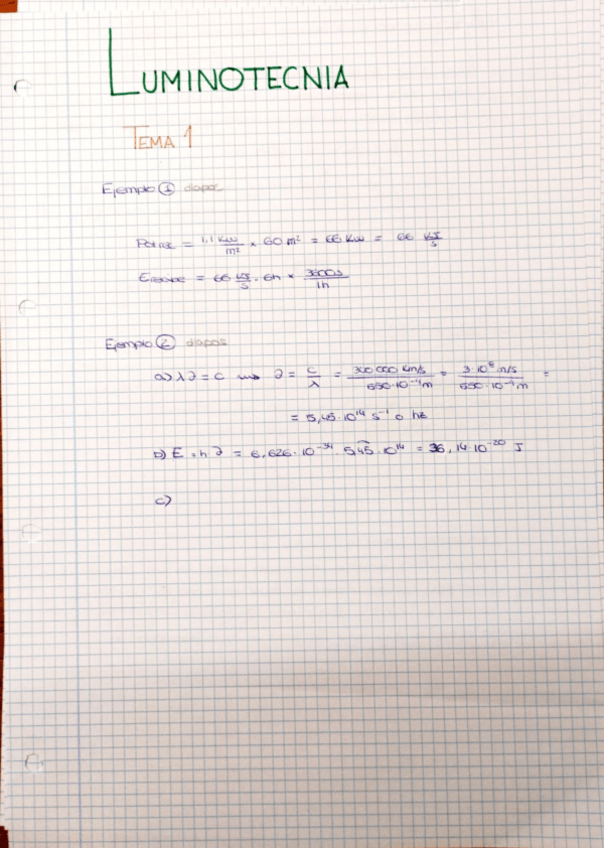 LUMINOTECNIA
TEMA 1
Ejemplo ① diapos
= 1,1 Kw/m² × 60 m² = 66 Kw = 66 KJ/s
= 66 KJ/s · 6h × 3600s/1h
Ejemplo ② diapos
a) λ∂ = c ⟿ ∂ = c/λ = 300 000 Km/s / 550·10⁻⁹m = 3·10⁸ m/s / 550·10⁻⁹m =
= 5,45·10¹⁴ s⁻¹ o hz
b) E = h ∂ = 6,626·10⁻³⁴ · 5,45·10¹⁴ = 36,14·10⁻²⁰ J
c)